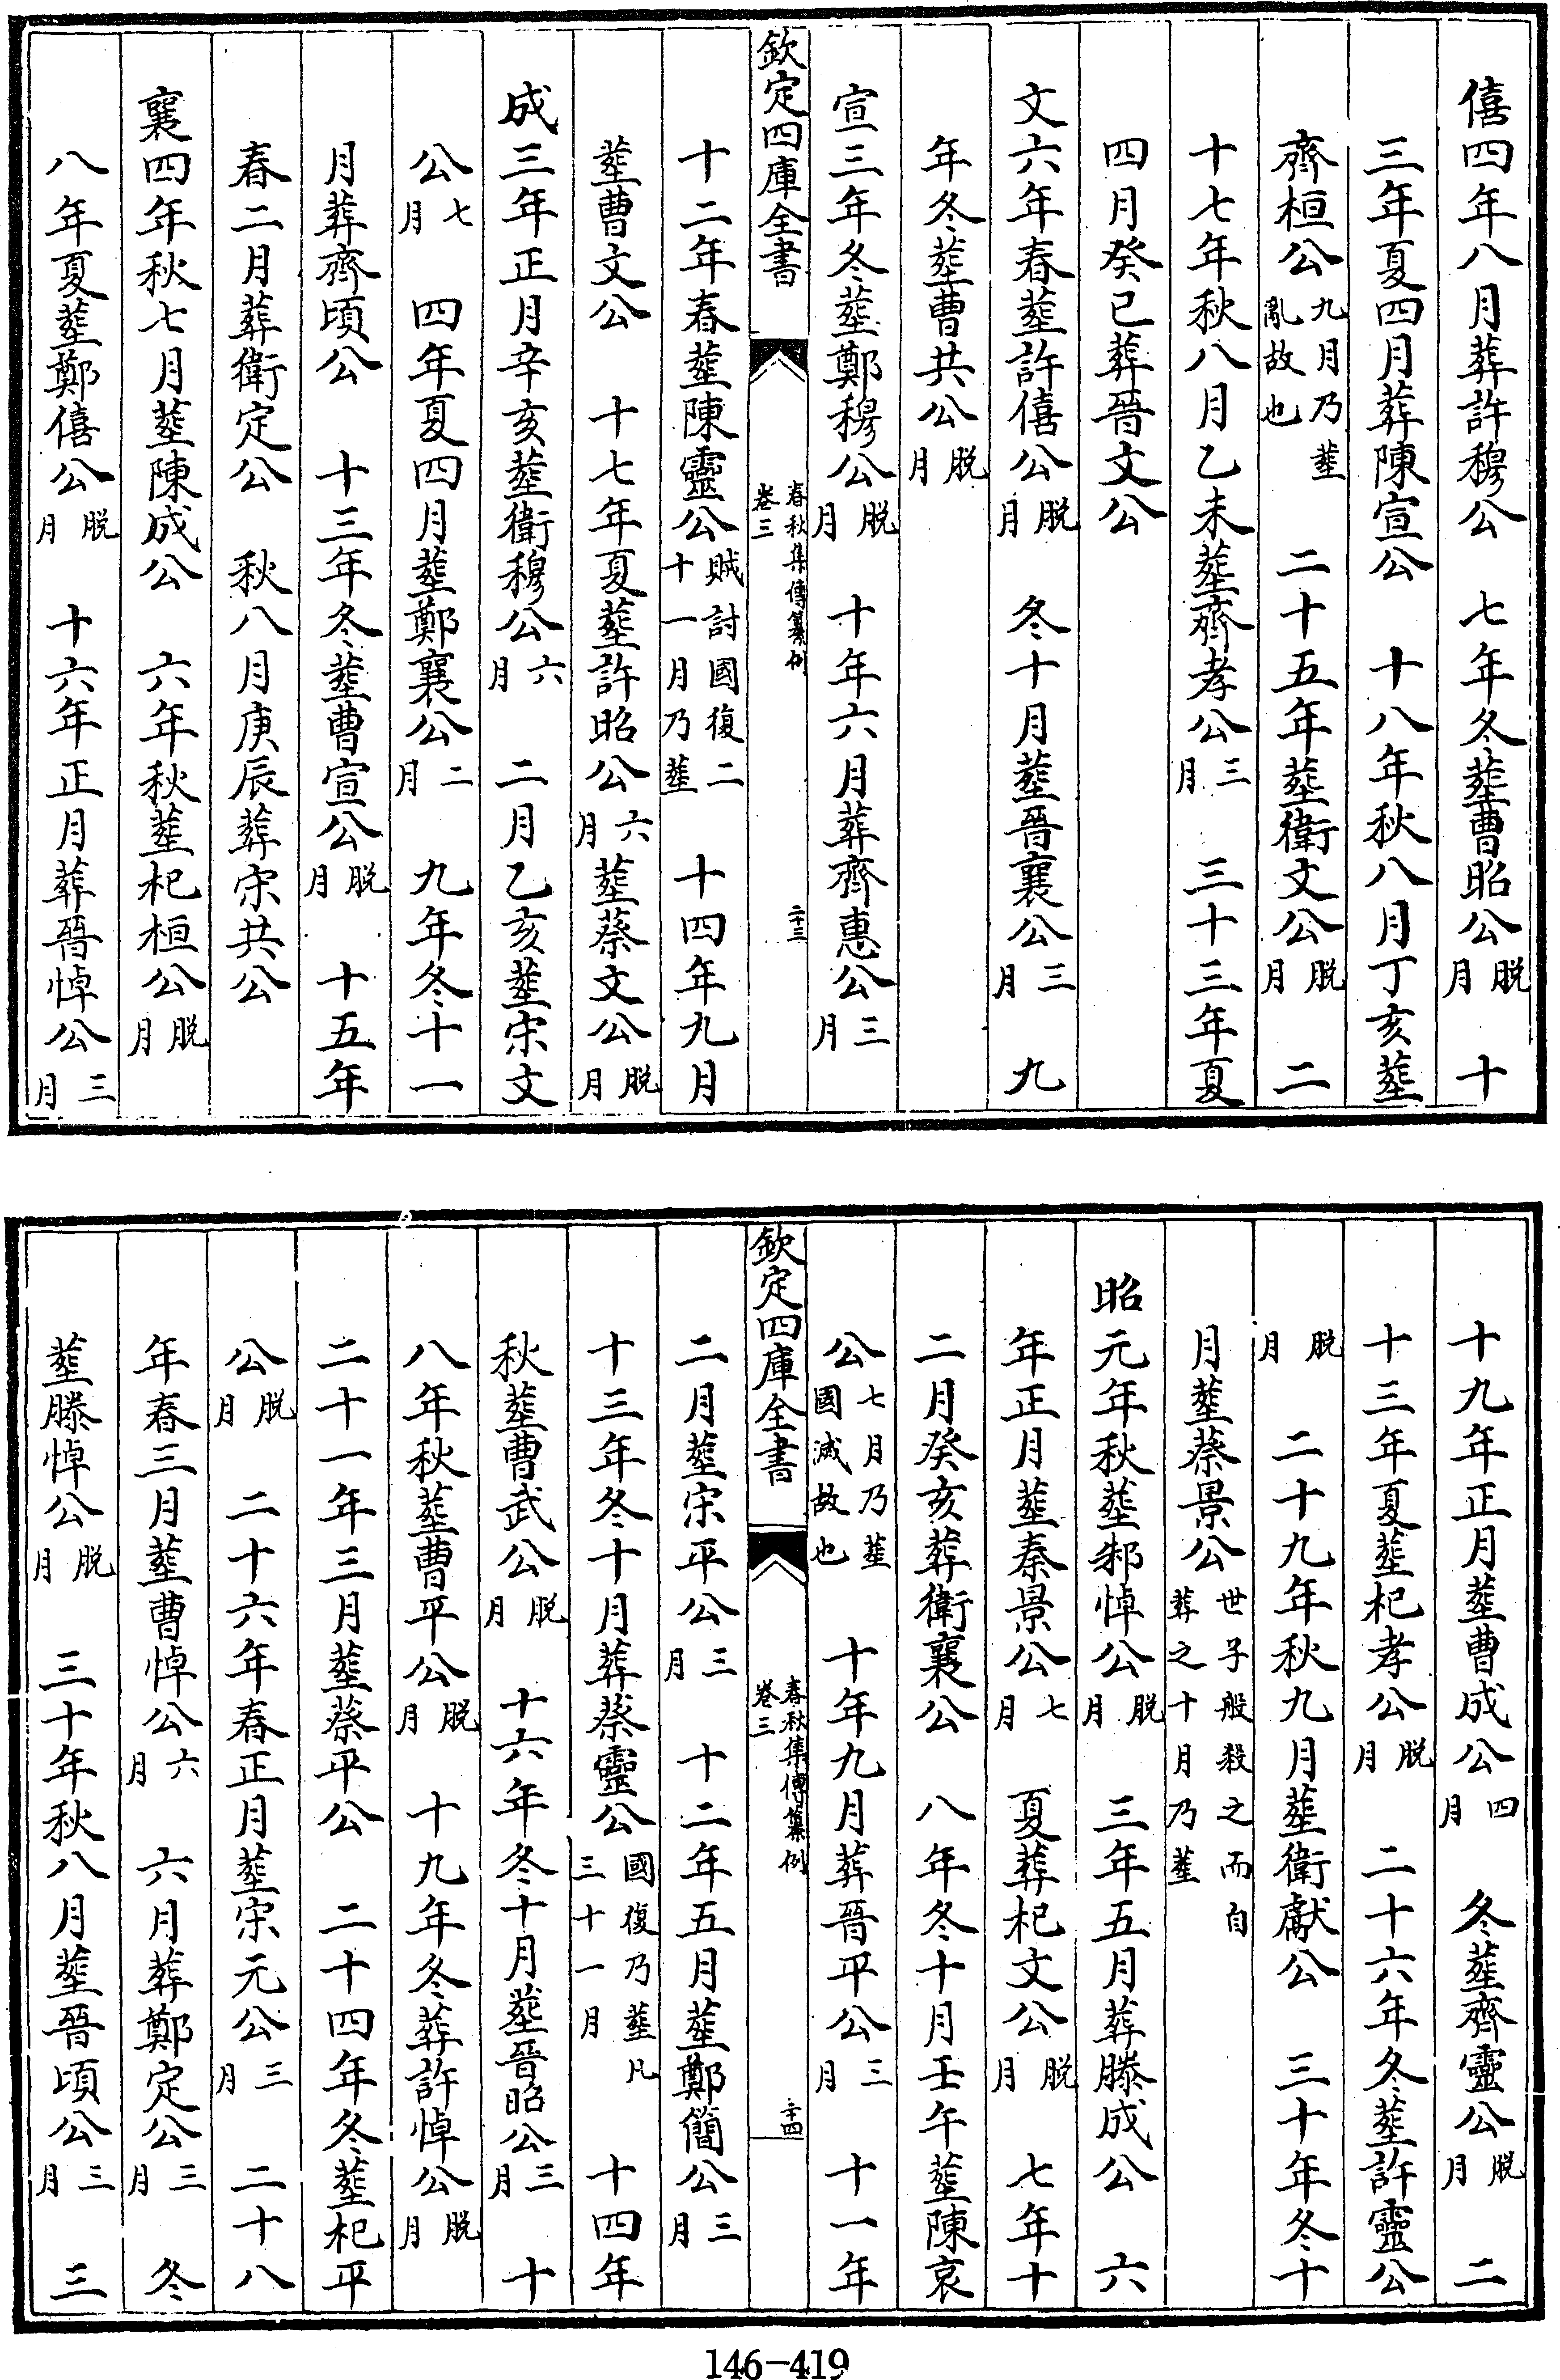 僖四年八月葬許穆公　七年冬葬曹昭公脱月　十
三年夏四月葬陳宣公　十八年秋八月丁亥葬
齊桓公九月乃葬亂故也　二十五年葬衛文公脱月　二
十七年秋八月乙未葬齊孝公三月　三十三年夏
四月癸巳葬晉文公
文六年春葬許僖公脱月　冬十月葬晉襄公三月　九
年冬葬曹共公脱月
宣三年冬葬鄭穆公脱月　十年六月葬齊惠公三月
欽定四庫全書　春秋集傳纂例卷三　二十三
十二年春葬陳靈公賊討國復二十一月乃葬　十四年九月
葬曹文公　十七年夏葬許昭公六月葬蔡文公脱月
成三年正月辛亥葬衛穆公六月　二月乙亥葬宋文
公七月　四年夏四月葬鄭襄公二月　九年冬十一
月葬齊頃公　十三年冬葬曹宣公脱月　十五年
春二月葬衛定公　秋八月庚辰葬宋共公
襄四年秋七月葬陳成公　六年秋葬杞桓公脱月
八年夏葬鄭僖公脱月　十六年正月葬晉悼公三月
十九年正月葬曹成公四月　冬葬齊靈公脱月　二
十三年夏葬杞孝公脱月　二十六年冬葬許靈公
脱月　二十九年秋九月葬衛獻公　三十年冬十
月葬蔡景公世子般殺之而自葬之十月乃葬
昭元年秋葬邾悼公脱月　三年五月葬滕成公　六
年正月葬秦景公七月　夏葬杞文公脱月　七年十
二月癸亥葬衛襄公　八年冬十月壬午葬陳哀
公七月乃葬國滅故也　十年九月葬晉平公三月　十一年
欽定四庫全書　春秋集傳纂例卷三　二十四
二月葬宋平公三月　十二年五月葬鄭簡公三月
十三年冬十月葬蔡靈公國復乃葬凡三十一月　十四年
秋葬曹武公脱月　十六年冬十月葬晉昭公三月　十
八年秋葬曹平公脱月　十九年冬葬許悼公脱月
二十一年三月葬蔡平公　二十四年冬葬杞平
公脱月　二十六年春正月葬宋元公三月　二十八
年春三月葬曹悼公六月　六月葬鄭定公三月　冬
葬滕悼公脱月　三十年秋八月葬晉頃公三月　三
146-419